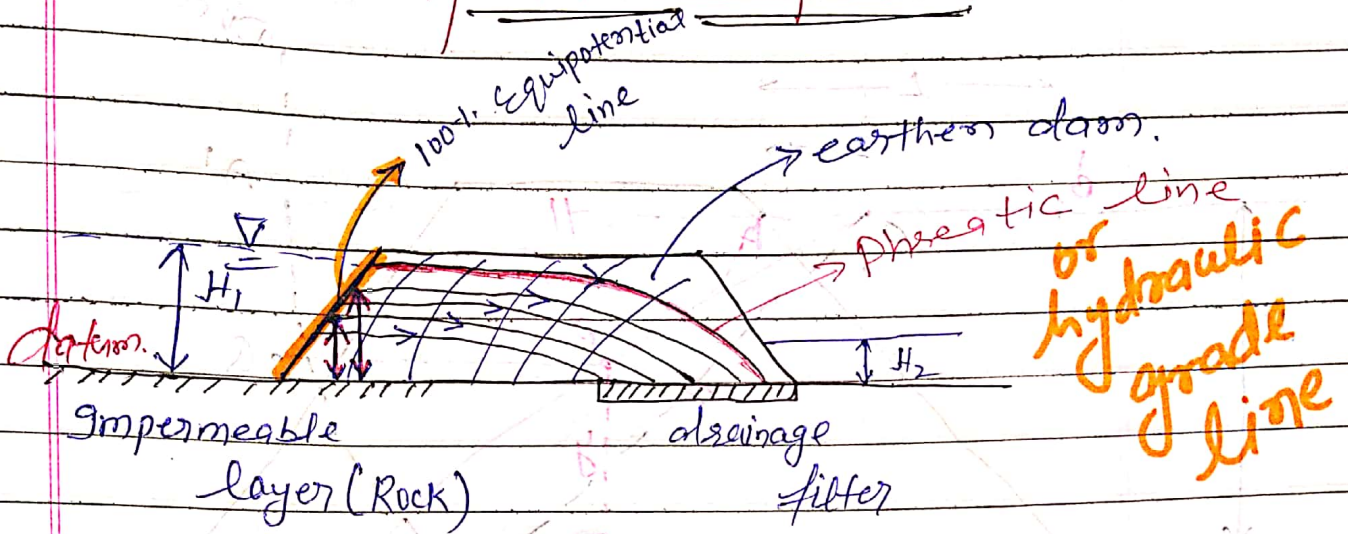 100%. Equipotential
line
earthen dam.
Phreatic line
or
hydraulic
grade
line
H₁
datum.
H₂
Impermeable
layer (Rock)
drainage
filter